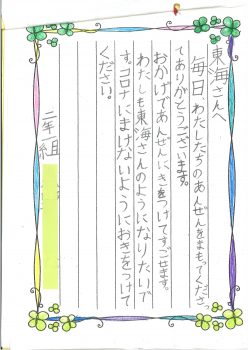 東海さんへ
毎日わたしたちのあんぜんをまもってくださっ
てありがとうございます。
おかげであんぜんにきをつけてすごせます。
わたしも東海さんのようになりたいで
す。コロナにまけないようにおきをつけて
ください。
二年 組